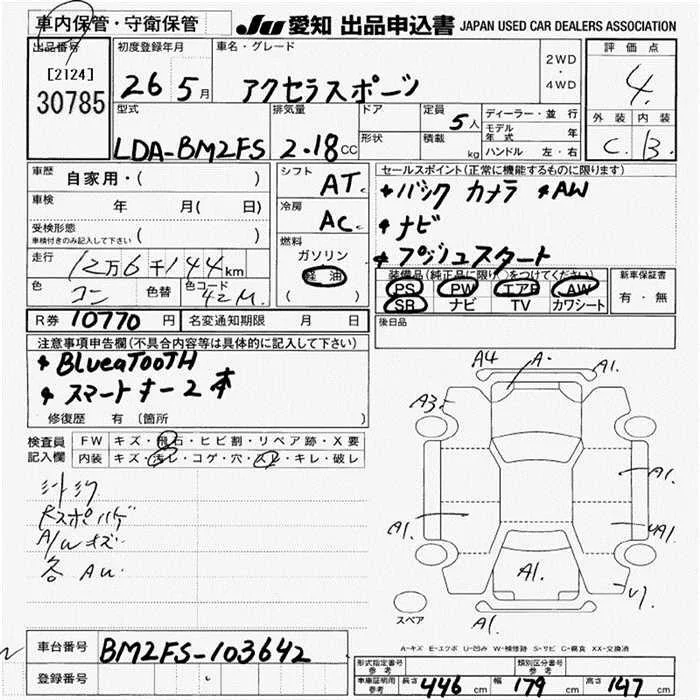 車内保管・守衛保管
JU 愛知 出品申込書 JAPAN USED CAR DEALERS ASSOCIATION
出品番号
[2124]
30785
初度登録年月
26 5月
車名・グレード
アクセラスポーツ
2WD
・
4WD
評価点
4.
外装 内装
C. B.
型式
LDA-BM2FS
排気量
2.18CC
ドア
形状
定員
5人
積載
kg
ディーラー・並行
モデル年式 年
ハンドル 左・右
車歴 自家用・( )
車検 年 月( 日)
受検形態
車検付きのみ記入して下さい ( )
走行 12万6千144km
色 コン 色替 色コード 42M.
シフト
AT
冷房
AC
燃料
ガソリン
軽油
( )
セールスポイント(正常に機能するものに限ります)
* バック カメラ * AW
* ナビ
* プッシュスタート
装備品(純正品に限り○をつけてください)
PS PW エアB AW
SR ナビ TV カワシート
新車保証書
有・無
後日品
R券 10770円
名変通知期限 月 日
注意事項申告欄(不具合内容等は具体的に記入して下さい)
* BLueaTooTH
* スマートキー2本
修復歴 有 〔箇所 〕
検査員
記入欄
FW キズ・飛石・ヒビ割・リペア跡・X要
内装 キズ・汚レ・コゲ・穴・スレ・キレ・破レ
A/Wキズ
A4 A- A1.
A3
A1.
A1. A1.
A1.
A1.
スペア
A-キズ E-エクボ U-凹み W-補修跡 S-サビ C-腐食 XX-交換済
車台番号 BM2FS-103642
登録番号
形式指定番号
参考
類別区分番号
参考
車庫証明用
参考
長さ 446 cm 幅 179 cm 高さ 147 cm